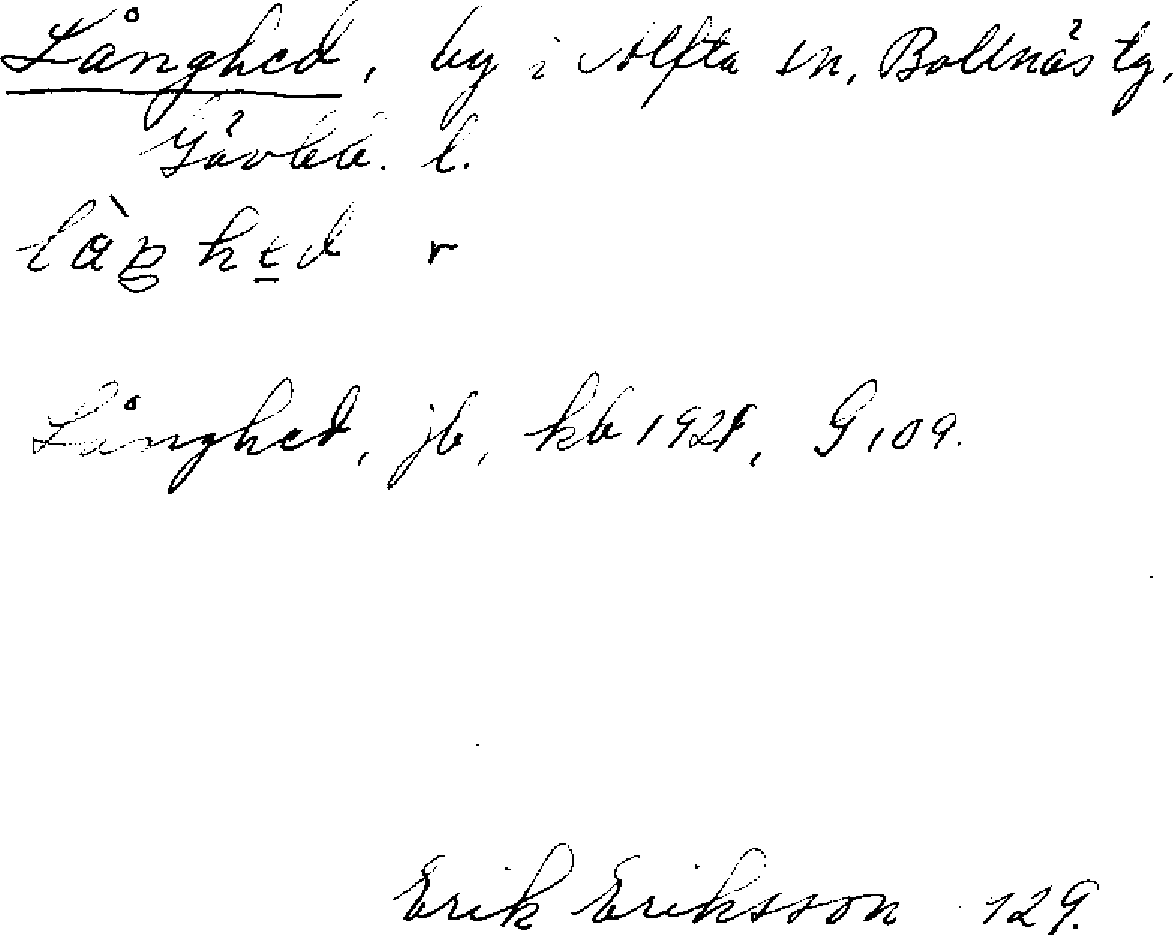 Långhed, by i Alfta sn, Bollnäs tg,
Gävleb. l.
Långhed, jb, kb 1921, G 109.
Erik Eriksson 129.